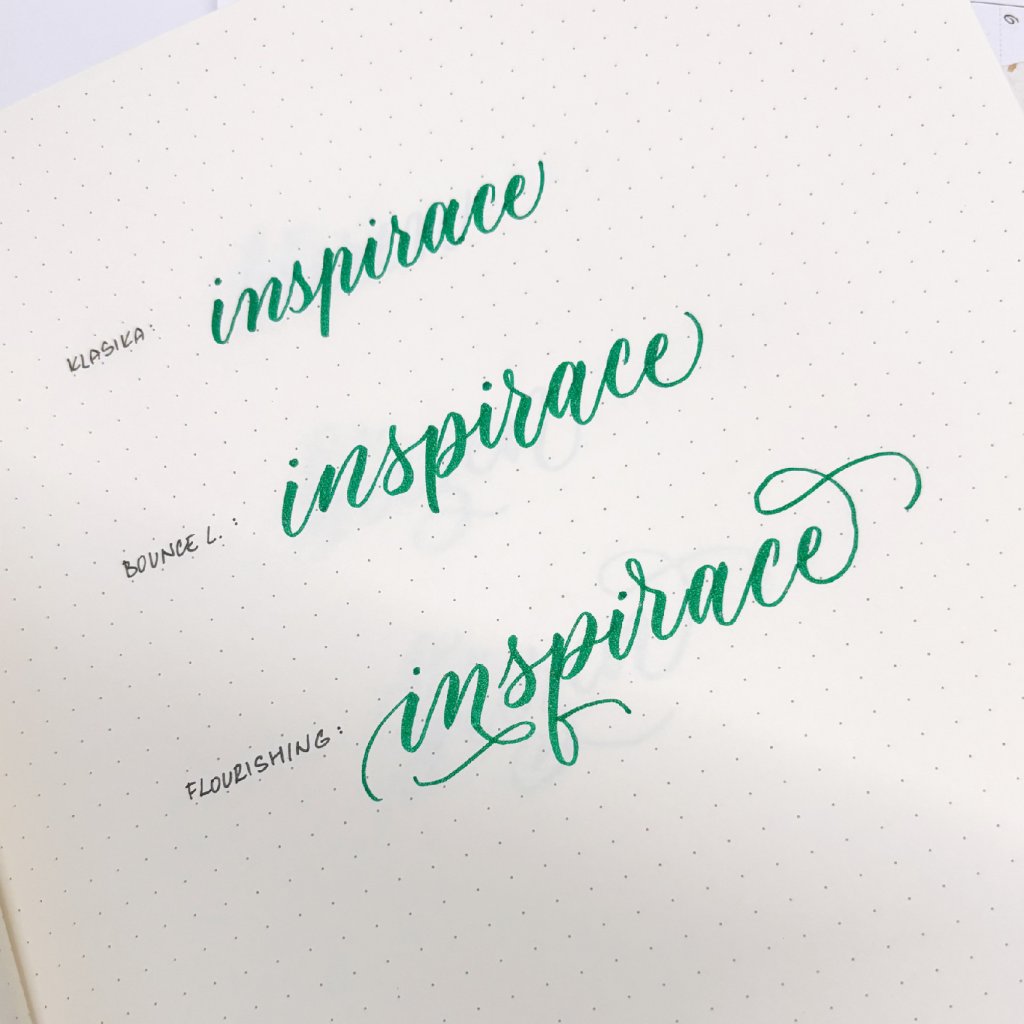 KLASIKA:
inspirace
BOUNCE L.:
inspirace
FLOURISHING:
inspirace
6